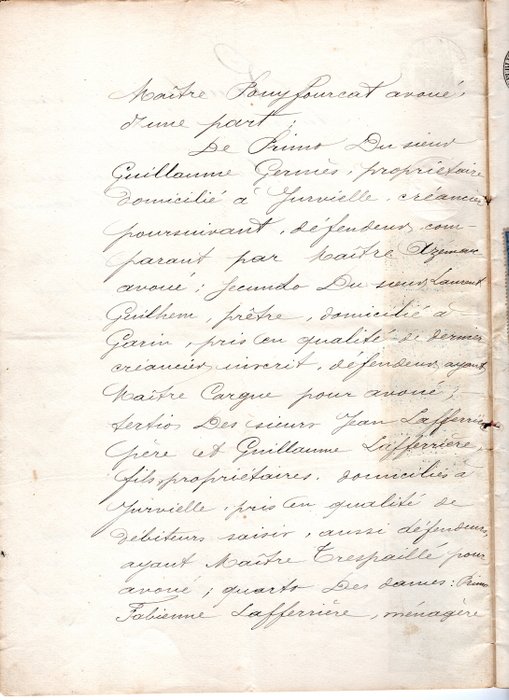 Maître Pouyfourcat avoué,
d'une part;
De Primo Du sieur
Guillaume Germès, propriétaire
domicilié à Jurvielle, créancier
poursuivant, défendeur, com-
parant par Maître Azémar
avoué; Secundo Du sieur Laurent
Guilhem, prêtre, domicilié à
Garin, pris en qualité de dernier
créancier inscrit, défendeur, ayant
Maître Cargue pour avoué;
tertio Des sieurs Jean Lafferrière
père et Guillaume Lafferrière,
fils, propriétaires, domiciliés à
Jurvielle, pris en qualité de
débiteurs saisis, aussi défendeurs,
ayant Maître Trespaillé pour
avoué; quarto Des dames: Primo
Fabienne Lafferrière, ménagère